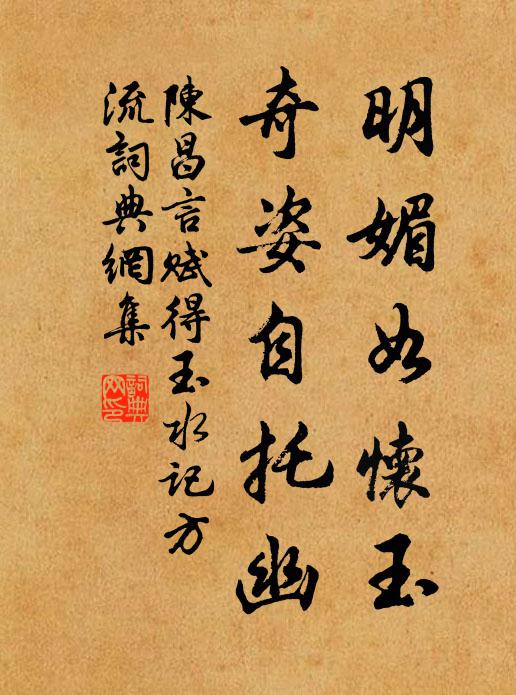 明媚如懷玉
奇姿自托幽
陳昌言賦得玉水記方
流詞典網集
詞典
网印